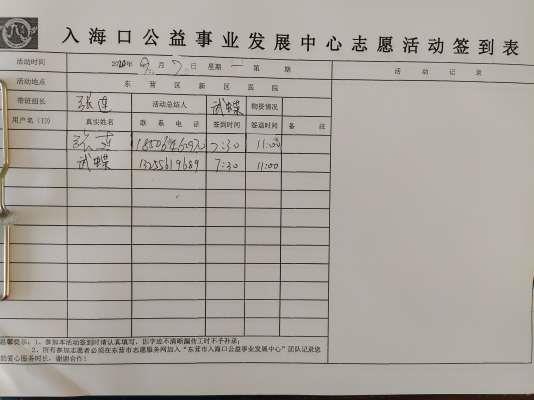 入海口公益事业发展中心志愿活动签到表
活动时间 2020年 9月 7日 星期一 第 期 活动记录
活动地点 东营区新区医院
带班组长 张莲 活动总结人 武蝶 物资情况
用户名(ID) 真实姓名 联系电话 签到时间 签退时间 备注
张莲 7:30 11:00
武蝶 13255619689 7:30 11:00
温馨提示:1、参加本活动签到时请认真填写,因字迹不清晰漏传工时不予补录;
2、所有参加志愿者必须在东营市志愿服务网加入“东营市入海口公益事业发展中心”团队记录您
的爱心服务时长,谢谢合作!